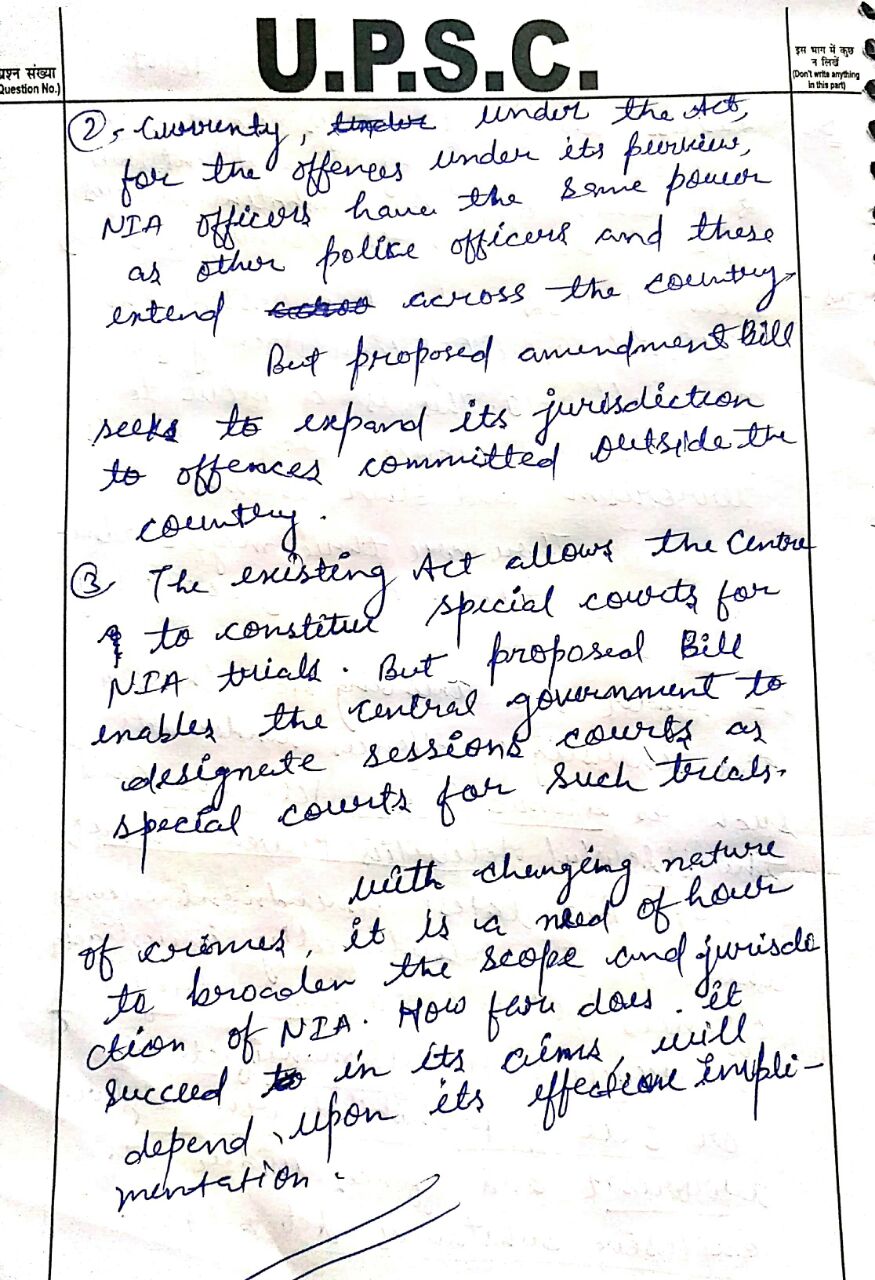 U.P.S.C.
प्रश्न संख्या
(Question No.)
इस भाग में कुछ
न लिखें
(Don't write anything
in this part)
2, Currenty, under under the Act,
for the offences under its purview,
NIA officers have the same power
as other police officers and these
extend across the country
But proposed amendment Bill
seeks to expand its jurisdiction
to offences committed outside the
country.
3, The existing Act allows the Centre
to constitue special courts for
NIA trials. But proposed Bill
enables the central government to
designate sessions courts as
special courts for such trials.
with changing nature
of crimes, it is a need of hour
to broaden the scope and jurisdi
ction of NIA. How far does it
succeed to in its aims, will
depend upon its effective impli-
mentation.